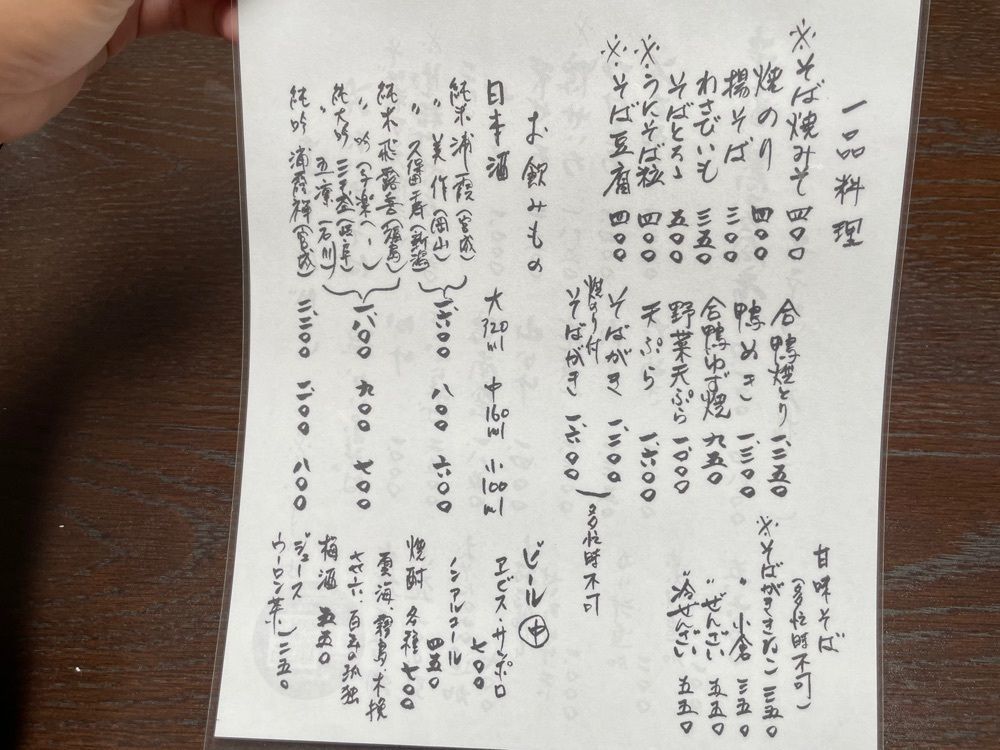 一品料理
※そば焼みそ 四〇〇
焼のり 四〇〇
揚そば 三〇〇
わさびいも 三五〇
そばとろろ 五〇〇
※うにそば粒 四〇〇
※そば豆腐 四〇〇
合鴨焼とり 一、二五〇
鴨ぬき 一、三〇〇
合鴨ゆず焼 九五〇
野菜天ぷら 一、〇〇〇
天ぷら 一、六〇〇
そばがき 一、三〇〇
焼のり付
そばがき 一、六〇〇
多忙時不可
甘味そば
(多忙時不可)
※そばがききなこ 三五〇
〃 小倉 三五〇
〃 ぜんざい 五五〇
〃 冷ぜんざい 五五〇
お飲みもの
日本酒 大320ml 中160ml 小100ml
純米 浦霞(宮城)
〃 美作(岡山)
〃 久保田寿(新潟)
一、六〇〇 八〇〇 六〇〇
純米 飛露喜(福島)
〃 吟(子楽(〃)
純大吟 三千盛(岐阜)
〃 五凛(石川)
一、八〇〇 九〇〇 七〇〇
純吟 浦霞禅(宮城) 二、二〇〇 一、二〇〇 八〇〇
ビール 中
ヱビス・サッポロ
七〇〇
ノンアルコール
四五〇
焼酎 各種 七〇〇
雲海、霧島、木挽
百年の孤独
梅酒 五五〇
ジュース
ウーロン茶 二五〇